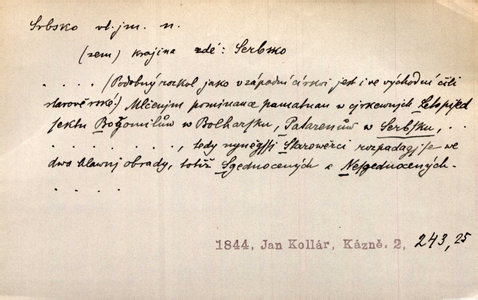 Srbsko vl. jm. n.
(zem) krajina zdé: Serbsko
. . . . (Podobný rozkol jako v západní církvi jest i ve východní čili
starověrské.) Mlčením pomínáme památnau w církewních Letopisech
sektu Bogomilůw w Bolharsku, Patarenůw w Serbsku, . .
. . . . . . . . ., tedy nyněgšj Starowěrci rozpadagj se we
dwa hlawnj obrady, totiž Sgednocených a Nesgednocených.
. . . . .
1844, Jan Kollár, Kázně. 2, 243, 25